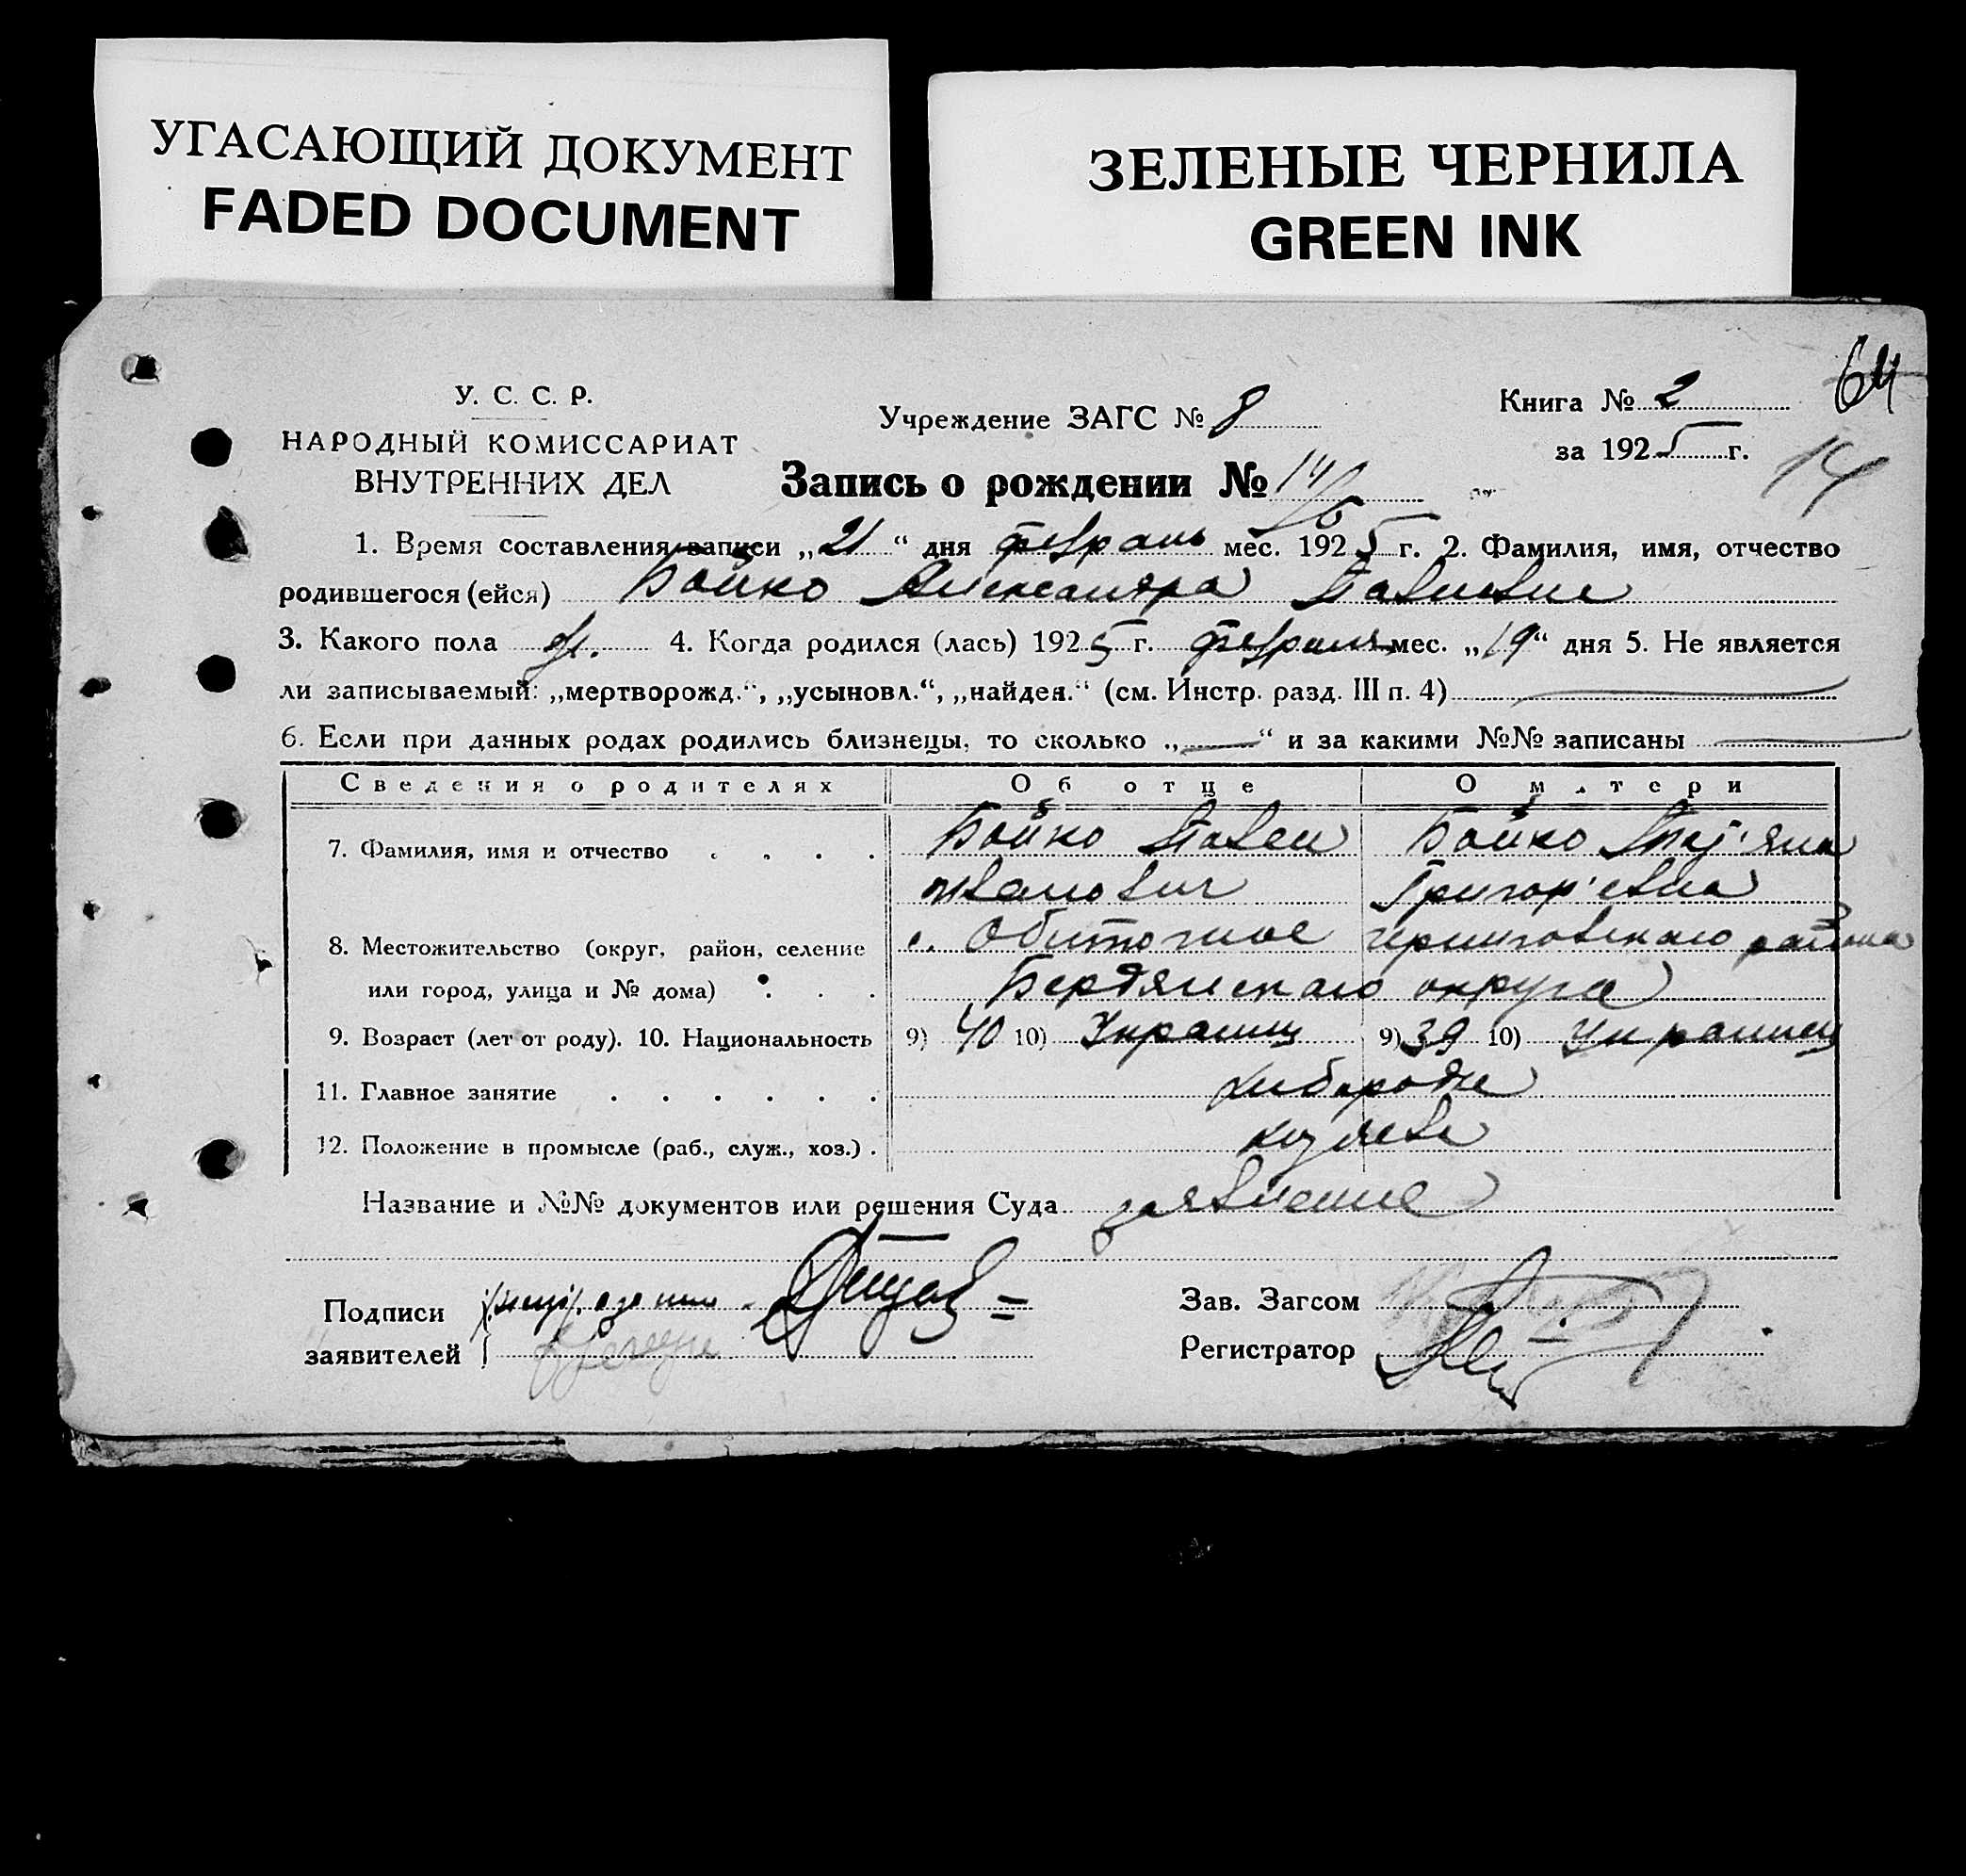 УГАСАЮЩИЙ ДОКУМЕНТ
FADED DOCUMENT
ЗЕЛЕНЫЕ ЧЕРНИЛА
GREEN INK
64
У. С. С. Р.
НАРОДНЫЙ КОМИССАРИАТ
ВНУТРЕННИХ ДЕЛ
Учреждение ЗАГС № 8
Книга № 2
за 1925 г.
14
Запись о рождении № 14
1. Время составления записи „21“ дня февраль мес. 1925 г. 2. Фамилия, имя, отчество
родившегося (ейся) Бойко Александра
3. Какого пола 4. Когда родился (лась) 1925 г. февраля мес. „19“ дня 5. Не является
ли записываемый: „мертворожд.“, „усыновл.“, „найден.“ (см. Инстр. разд. III п. 4)
6. Если при данных родах родились близнецы, то сколько „—“ и за какими №№ записаны —
Сведения о родителях Об отце О матери
7. Фамилия, имя и отчество . . . . Бойко Павел Бойко
Григор'евна
8. Местожительство (округ, район, селение с. Обиточное черниговскаго района
или город, улица и № дома) . . . Бердянскаго округа
9. Возраст (лет от роду). 10. Национальность 9) 40 10) Украинц 9) 39 10) Украинц
11. Главное занятие . . . . . . хлебороб
12. Положение в промысле (раб., служ., хоз.) .
Название и №№ документов или решения Суда заявление
Подписи
заявителей
Зав. Загсом
Регистратор